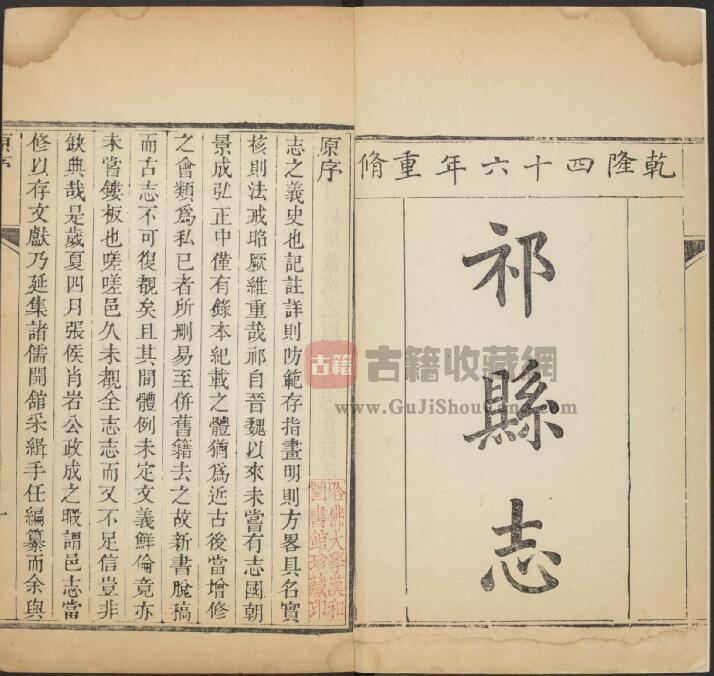 乾隆四十六年重脩
祁縣志
原序
志之義史也記註詳則防範存指畫明則方畧具名實
核則法戒昭厥維重哉祁自晉魏以來未嘗有志國朝
景成弘正中僅有錄本紀載之體猶爲近古後當增修
之會類爲私已者所刪易至併舊籍去之故新書脫稿
而古志不可復覩矣且其間體例未定文義鮮倫竟亦
未嘗鏤板也嗟嗟邑久未覩全志志而又不足信豈非
缺典哉是歲夏四月張侯肖岩公政成之暇謂邑志當
修以存文獻乃延集諸儒開舘采緝手任編纂而余與
原序
一
哈佛大學漢和
圖書館珍藏印
古籍
古籍收藏網